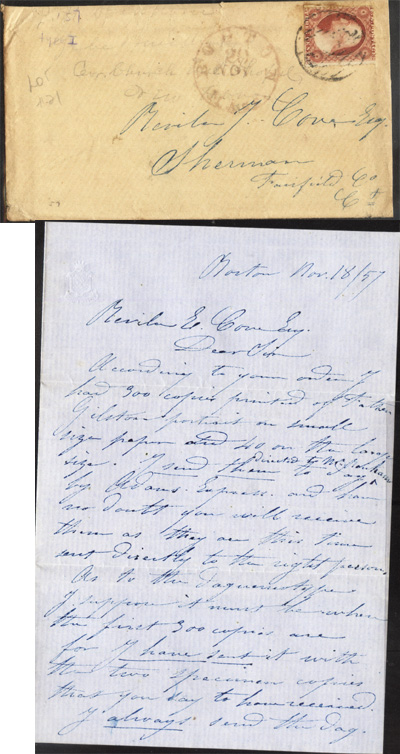 BOSTON
20
NOV
MASS
T. Cove Esq.
Sherman
Fairfield Co
Ct
Boston Nov. 18/57
Cove Esq.
Dear Sir
According to your order I
had 300 copies printed of
portrait on small
size paper and 40 on the large
size. I send them directed to to
by Adams Express. and have
no doubt you will receive
them as they are this time
sent directly to the right person.
As to the Daguerreotype
I suppose it must be where
the first 300 copies are
for I have sent it with
the two specimen copies
that you say to have received.
I always send the Dag.